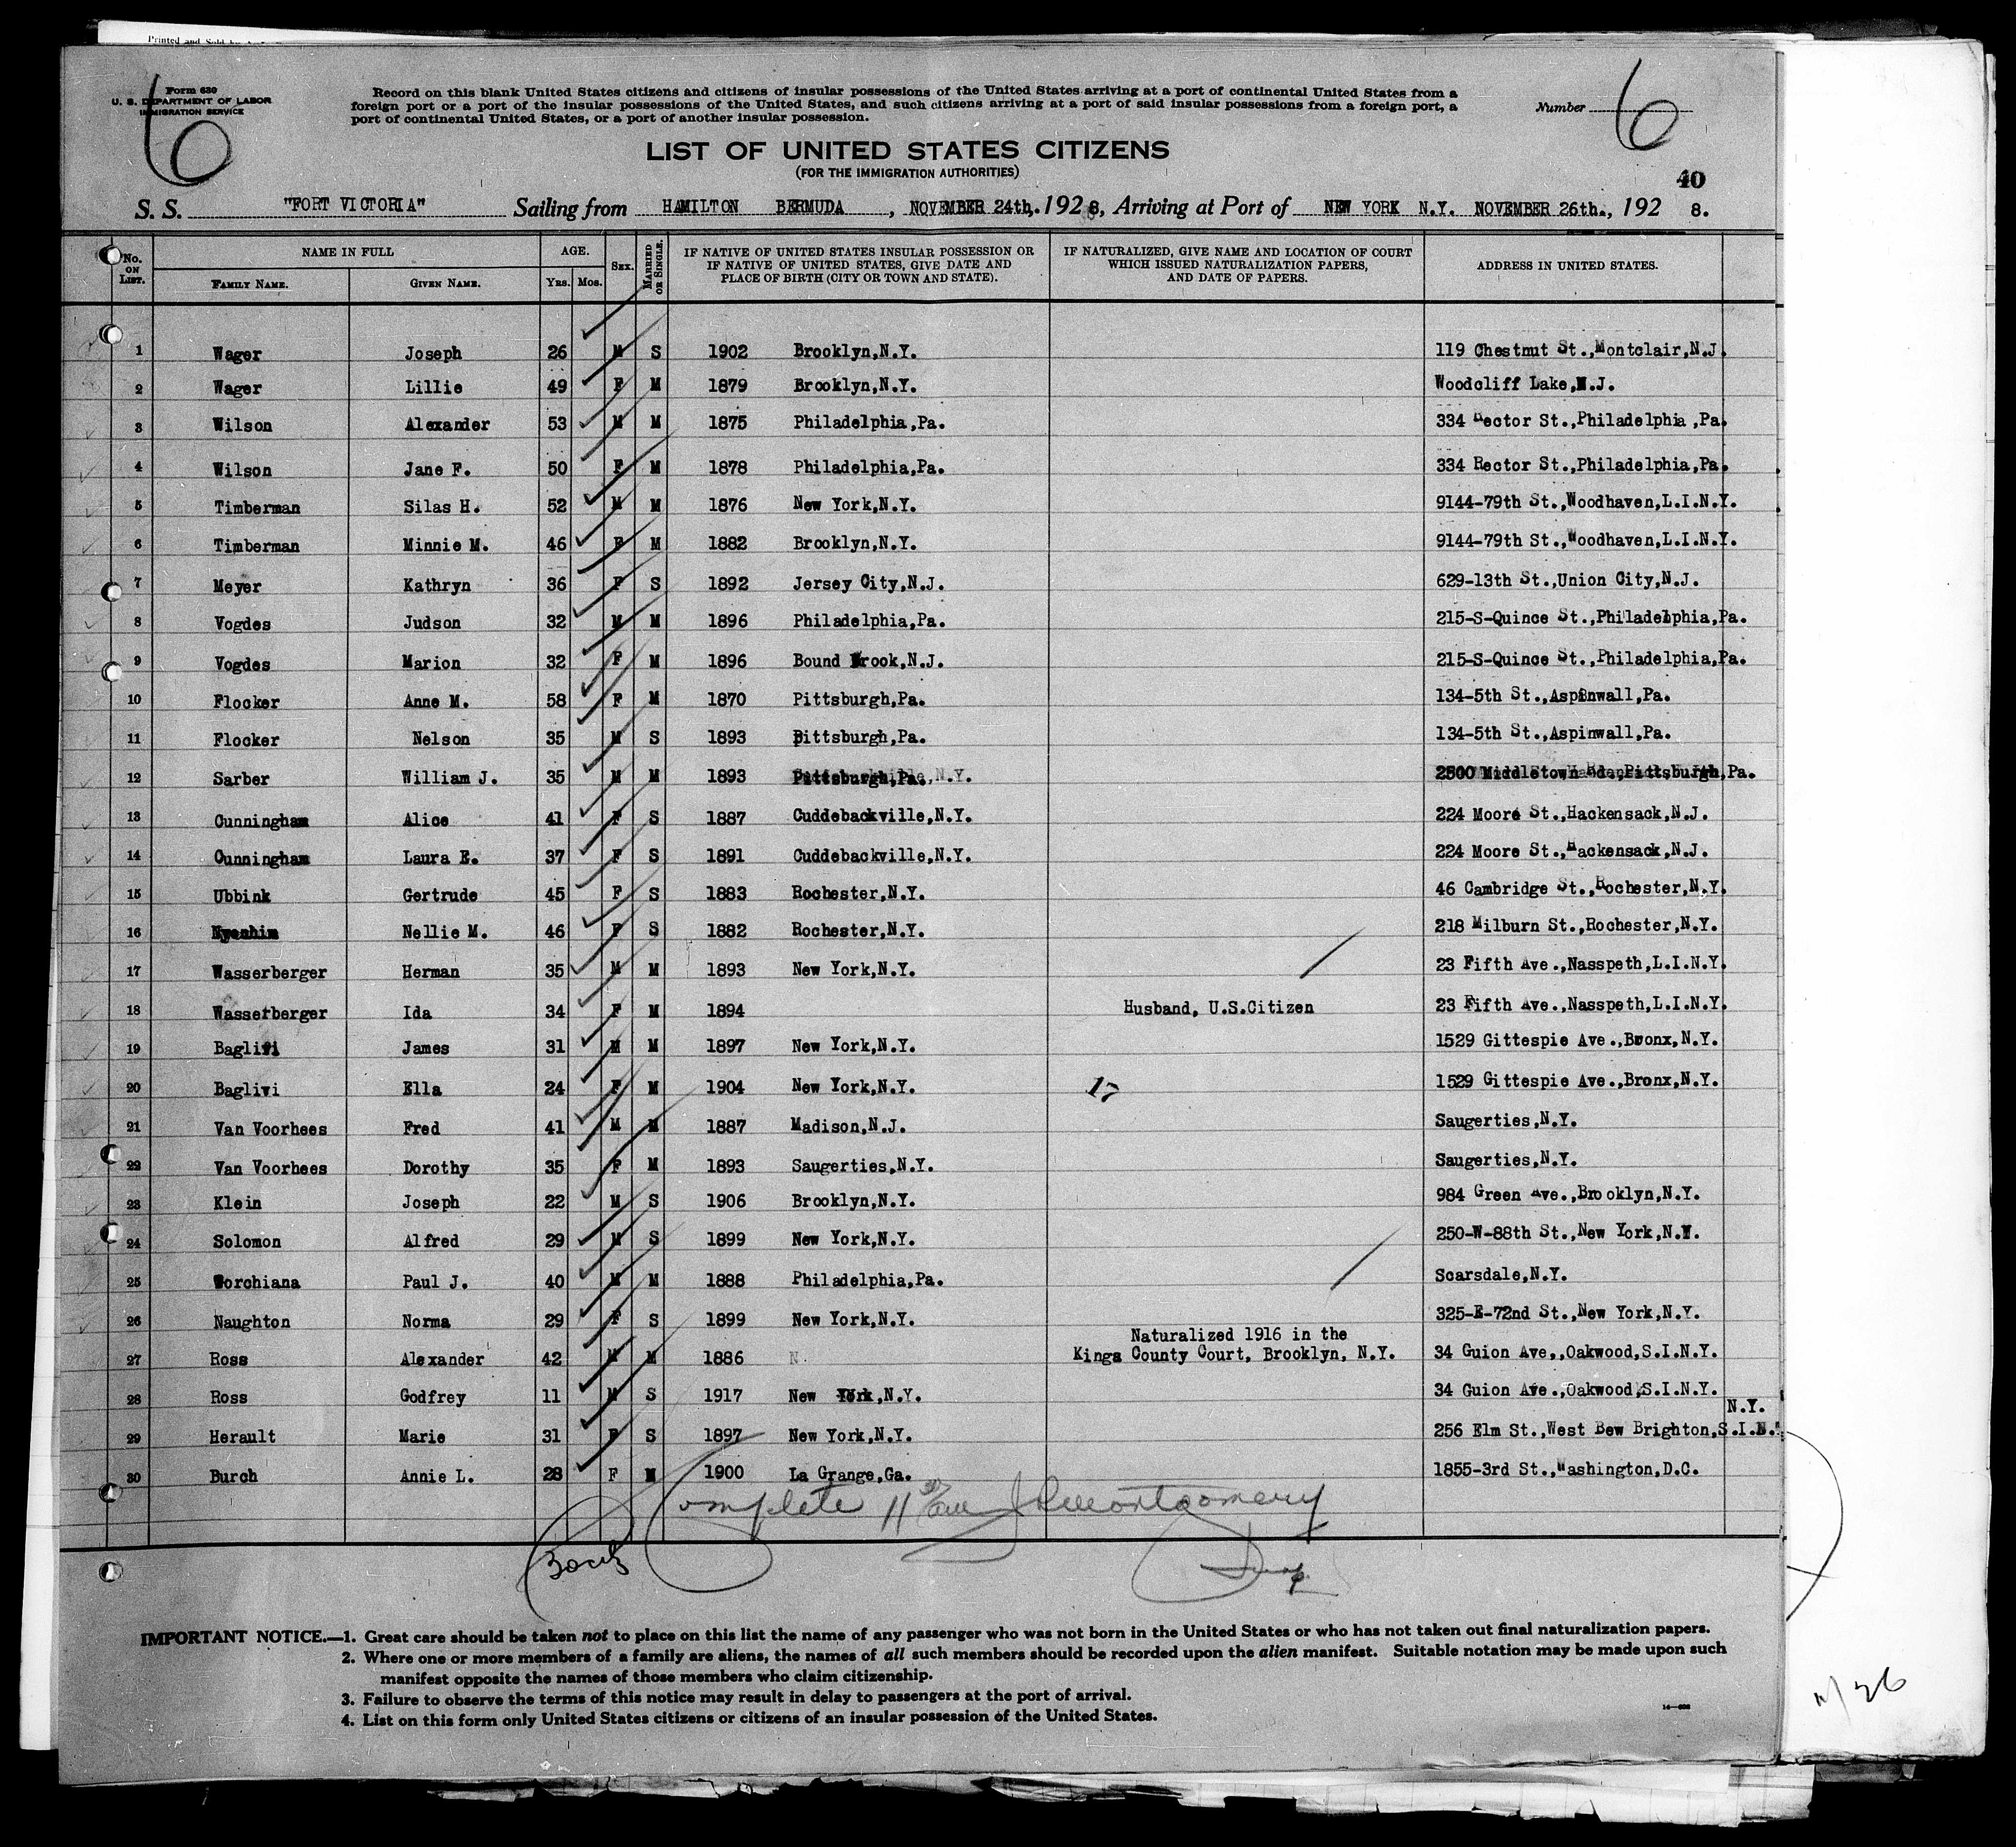 Printed and Sold by
Form 630
U. S. DEPARTMENT OF LABOR
IMMIGRATION SERVICE
6
Record on this blank United States citizens and citizens of insular possessions of the United States arriving at a port of continental United States from a
foreign port or a port of the insular possessions of the United States, and such citizens arriving at a port of said insular possessions from a foreign port, a
port of continental United States, or a port of another insular possession.
Number 6
LIST OF UNITED STATES CITIZENS
(FOR THE IMMIGRATION AUTHORITIES)
40
S. S. "FORT VICTORIA" Sailing from HAMILTON BERMUDA, NOVEMBER 24th., 1928, Arriving at Port of NEW YORK N.Y. NOVEMBER 26th., 192 8.
No. ON LIST. NAME IN FULL AGE. SEX. MARRIED OR SINGLE. IF NATIVE OF UNITED STATES INSULAR POSSESSION OR IF NATIVE OF UNITED STATES, GIVE DATE AND PLACE OF BIRTH (CITY OR TOWN AND STATE). IF NATURALIZED, GIVE NAME AND LOCATION OF COURT WHICH ISSUED NATURALIZATION PAPERS, AND DATE OF PAPERS. ADDRESS IN UNITED STATES.
FAMILY NAME. GIVEN NAME. Yrs. Mos.
1 Wager Joseph 26 M S 1902 Brooklyn,N.Y. 119 Chestnut St.,Montclair,N.J.
2 Wager Lillie 49 F M 1879 Brooklyn,N.Y. Woodcliff Lake,N.J.
3 Wilson Alexander 53 M M 1875 Philadelphia,Pa. 334 Rector St.,Philadelphia,Pa.
4 Wilson Jane F. 50 F M 1878 Philadelphia,Pa. 334 Rector St.,Philadelphia,Pa.
5 Timberman Silas H. 52 M M 1876 New York,N.Y. 9144-79th St.,Woodhaven,L.I.N.Y.
6 Timberman Minnie M. 46 F M 1882 Brooklyn,N.Y. 9144-79th St.,Woodhaven,L.I.N.Y.
7 Meyer Kathryn 36 F S 1892 Jersey City,N.J. 629-13th St.,Union City,N.J.
8 Vogdes Judson 32 M M 1896 Philadelphia,Pa. 215-S-Quince St.,Philadelphia,Pa.
9 Vogdes Marion 32 F M 1896 Bound Brook,N.J. 215-S-Quince St.,Philadelphia,Pa.
10 Flocker Anne M. 58 F M 1870 Pittsburgh,Pa. 134-5th St.,Aspinwall,Pa.
11 Flocker Nelson 35 M S 1893 Pittsburgh,Pa. 134-5th St.,Aspinwall,Pa.
12 Sarber William J. 35 M M 1893 Pittsburgh,Pa. 2500 Middletown Rd.,Pittsburgh,Pa.
13 Cunningham Alice 41 F S 1887 Cuddebackville,N.Y. 224 Moore St.,Hackensack,N.J.
14 Cunningham Laura E. 37 F S 1891 Cuddebackville,N.Y. 224 Moore St.,Hackensack,N.J.
15 Ubbink Gertrude 45 F S 1883 Rochester,N.Y. 46 Cambridge St.,Rochester,N.Y.
16 Nellie M. 46 F S 1882 Rochester,N.Y. 218 Milburn St.,Rochester,N.Y.
17 Wasserberger Herman 35 M M 1893 New York,N.Y. 23 Fifth Ave.,Nasspeth,L.I.N.Y.
18 Wasserberger Ida 34 F M 1894 Husband, U.S.Citizen 23 Fifth Ave.,Nasspeth,L.I.N.Y.
19 Baglivi James 31 M M 1897 New York,N.Y. 1529 Gittespie Ave.,Bronx,N.Y.
20 Baglivi Ella 24 F M 1904 New York,N.Y. 17 1529 Gittespie Ave.,Bronx,N.Y.
21 Van Voorhees Fred 41 M M 1887 Madison,N.J. Saugerties,N.Y.
22 Van Voorhees Dorothy 35 F M 1893 Saugerties,N.Y. Saugerties,N.Y.
23 Klein Joseph 22 M S 1906 Brooklyn,N.Y. 984 Green Ave.,Brooklyn,N.Y.
24 Solomon Alfred 29 M S 1899 New York,N.Y. 250-W-88th St.,New York,N.Y.
25 Worchiana Paul J. 40 M M 1888 Philadelphia,Pa. Scarsdale,N.Y.
26 Naughton Norma 29 F S 1899 New York,N.Y. 325-E-72nd St.,New York,N.Y.
Naturalized 1916 in the
27 Ross Alexander 42 M M 1886 N. Kings County Court, Brooklyn, N.Y. 34 Guion Ave,,Oakwood,S.I.N.Y.
28 Ross Godfrey 11 M S 1917 New York,N.Y. 34 Guion Ave.,Oakwood,S.I.N.Y.
N.Y.
29 Herault Marie 31 F S 1897 New York,N.Y. 256 Elm St.,West Bew Brighton,S.I.N.
30 Burch Annie L. 28 F M 1900 La Grange,Ga. 1855-3rd St.,Washington,D.C.
Complete 11 30 am J Montgomery
Insp
IMPORTANT NOTICE.—1. Great care should be taken not to place on this list the name of any passenger who was not born in the United States or who has not taken out final naturalization papers.
2. Where one or more members of a family are aliens, the names of all such members should be recorded upon the alien manifest. Suitable notation may be made upon such
manifest opposite the names of those members who claim citizenship.
3. Failure to observe the terms of this notice may result in delay to passengers at the port of arrival.
4. List on this form only United States citizens or citizens of an insular possession of the United States.
11/26